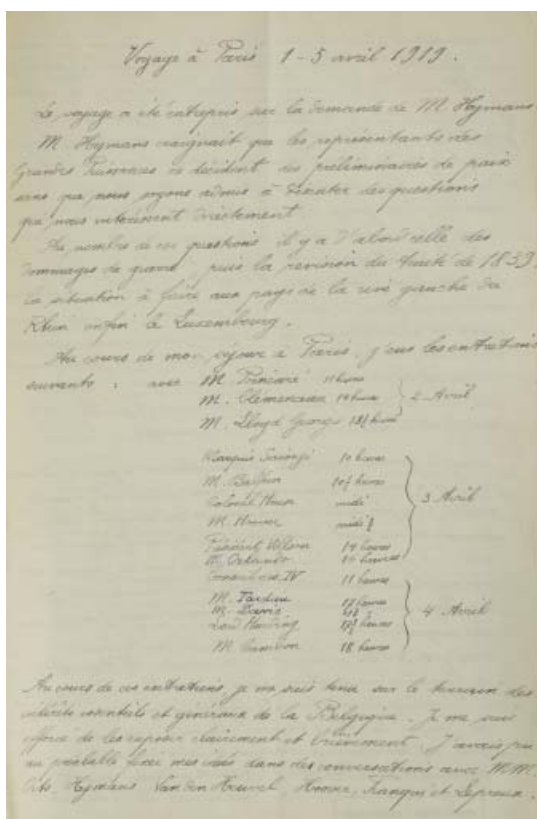 Voyage à Paris 1-5 avril 1919.
Le voyage a été entrepris sur la demande de M. Hymans
M. Hymans craignait que les représentants des
Grandes Puissances ne décident des préliminaires de paix
sans que nous soyons admis à discuter des questions
qui nous intéressent directement.
Au nombre de ces questions il y a d'abord celle des
dommages de guerre, puis la revision du traité de 1839,
la situation à faire aux pays de la rive gauche du
Rhin enfin le Luxembourg.
Au cours de mon séjour à Paris, j'eus les entretiens
suivants : avec M. Poincaré 11 heures
M. Clémenceau 14 heures 2 Avril
M. Lloyd George
Marquis 10 heures
M. Balfour
Colonel House midi
M. Hoover midi ½
3 Avril
Président Wilson 14 heures
M. Orlando 16 heures
11 heures
M. Tardieu 17 heures
M. Davis
4 Avril
Lord Harding
M. Cambon 18 heures
Au cours de ces entretiens, je me suis tenu sur le terrain des
intérêts essentiels et généraux de la Belgique. Je me suis
efforcé de les exposer clairement et brièvement. J'avais pu
au préalable fixer mes idées dans des conversations avec M.M.
Orts, Hymans, Van den Heuvel, Hoover, Francqui et Lepreux.